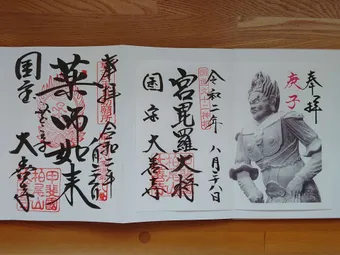 奉拝
庚子
令和二年 八月二十八日
宮毘羅大将
国宝 大善寺
奉拝 令和二年
薬師如来
甲斐國
柏尾山
国宝
大善寺